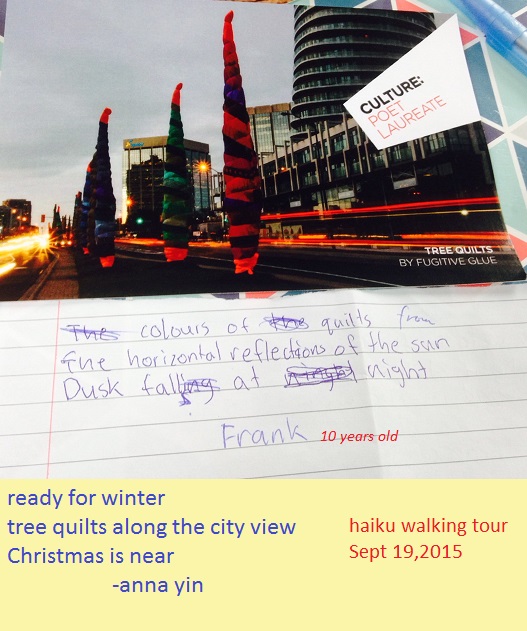 CULTURE:
POET
LAUREATE
TREE QUILTS
BY FUGITIVE GLUE
The colours of the quilts from
the horizontal reflections of the sun
Dusk falling at night
Frank 10 years old
ready for winter
tree quilts along the city view
Christmas is near
-anna yin
haiku walking tour
Sept 19,2015